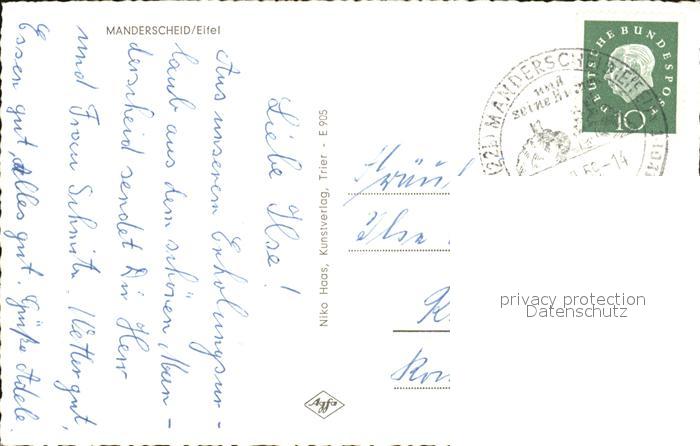 MANDERSCHEID/Eifel
Liebe Ilse!
Aus unserem Erholungsur-
laub aus dem schönen, Man-
derscheid sendet Dir Herr
und Frau Schmitz. Wetter gut,
Essen gut, Alles gut. Grüße Adele.
Niko Haas, Kunstverlag, Trier - E 905
Agfa
DEUTSCHE BUNDESPOST
10
MANDERSCHEID
und
seine
59-14
Fräul
Ilse
K
privacy protection
Datenschutz